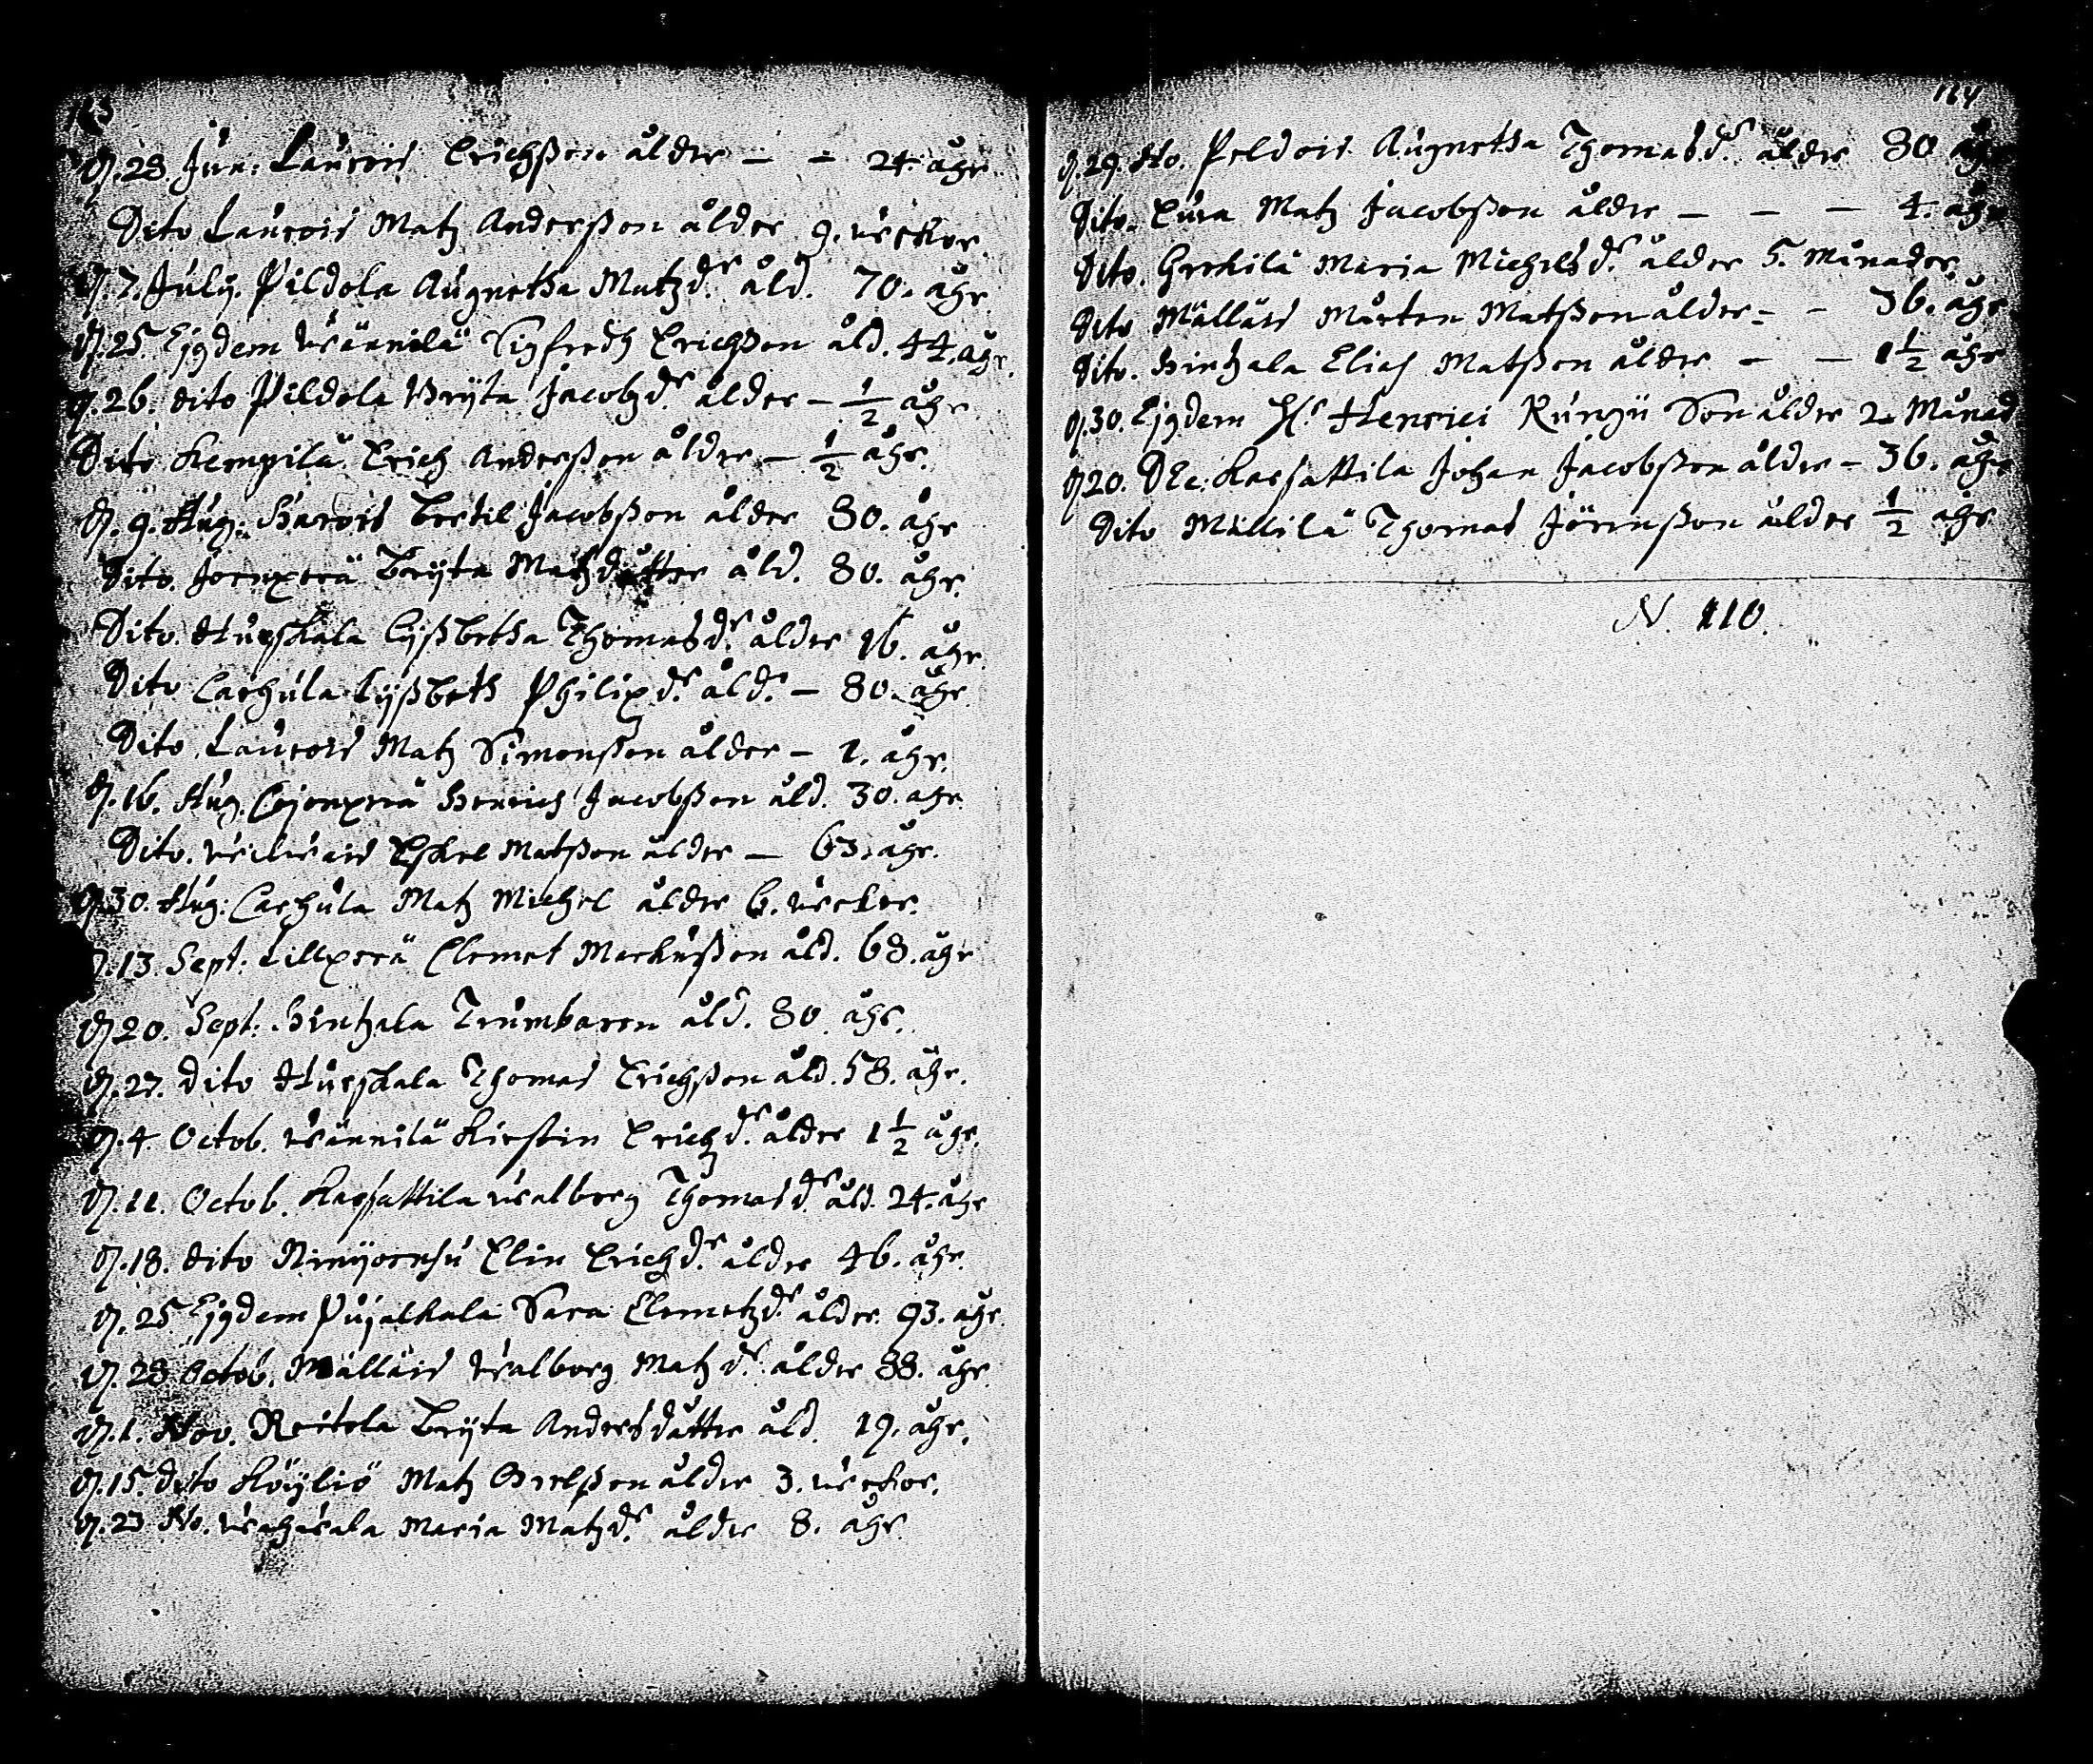 163
D. 28. Jun: Laurois Erichßon ålder – – 24. åhr.
Dito Laurois Matz Anderßon ålder 9. weckor.
D. 7. July. Pildola Augnetha Matzdr. åld. 70. åhr
D. 25. Ejgdem Wännilä Sigfredh Erichßon åld. 44. åhr.
D. 26. dito Pildola Bryta Jacobzdr. ålder – 1/2 åhr.
Dito Kempilä Erich Anderßon ålder – 1/2 åhr.
D. 9. Aug: Harois Bertil Jacobßon ålder 80. åhr
Dito. Joenperä Bryta Matzdotter åld. 80. åhr.
Dito. Hurskala Lyßbetha Thomasdr. ålder 16. åhr.
Dito Carhula Lyßbeth Philipdr. åld. – 80. åhr
Dito Laurois Matz Simonßon ålder – 1. åhr.
D. 16. Aug. Henrich Jacobßon åld. 30. åhr.
Dito. Eskel Matßon ålder – 63. åhr.
D. 30. Aug: Carhula Matz Michel ålder 6. weckor.
D. 13. Sept: Lillperä Clemet Markußon åld. 68. åhr
D. 20. Sept: Hintzala Trumbaren åld. 80. åhr.
D. 27. dito Hurskala Thomas Erichßon åld. 58. åhr.
D. 4. Octob. Wännilä Kirstin Erichzdr. ålder 1 1/2 åhr.
D. 11. Octob. Karsattila Walborg Thomasdr. åld. 24. åhr
D. 18. dito Elin Erichzdr. ålder 46. åhr.
D. 25 Ejgdem Pujalkala Sara Clemetzdr. ålder. 93. åhr.
D. 28 Octob. Mälläis Walborg Matzdr. ålder 88. åhr.
D. 1. Nov. Reitola Bryta Andersdotter åld. 19. åhr.
D. 15. dito Köyliö Matz Grelßon ålder 3. weckor.
D. 23 No. Wahavala Maria Matzdr. ålder 8. åhr.
164
D. 29. No. Peldois Augnetha Thomasdr. ålder 80 åhr
Dito. Eura Matz Jacobßon ålder – – – 4. åhr
Dito. Gerkilä Maria Michelsdr. ålder 5. Månader.
Dito Mälläis Mårten Matßon ålder – – 36. åhr
Dito. Hintzala Elias Matßon ålder – – 1 1/2 åhr
D. 30. Ejgdem Hr. Henrici Son ålder 2 Månad
D 20. DEc: Karsattila Johan Jacobßon ålder – 36. åhr
Dito Mällilä Thomas Jörenßon ålder 1/2 åhr
N. 110.